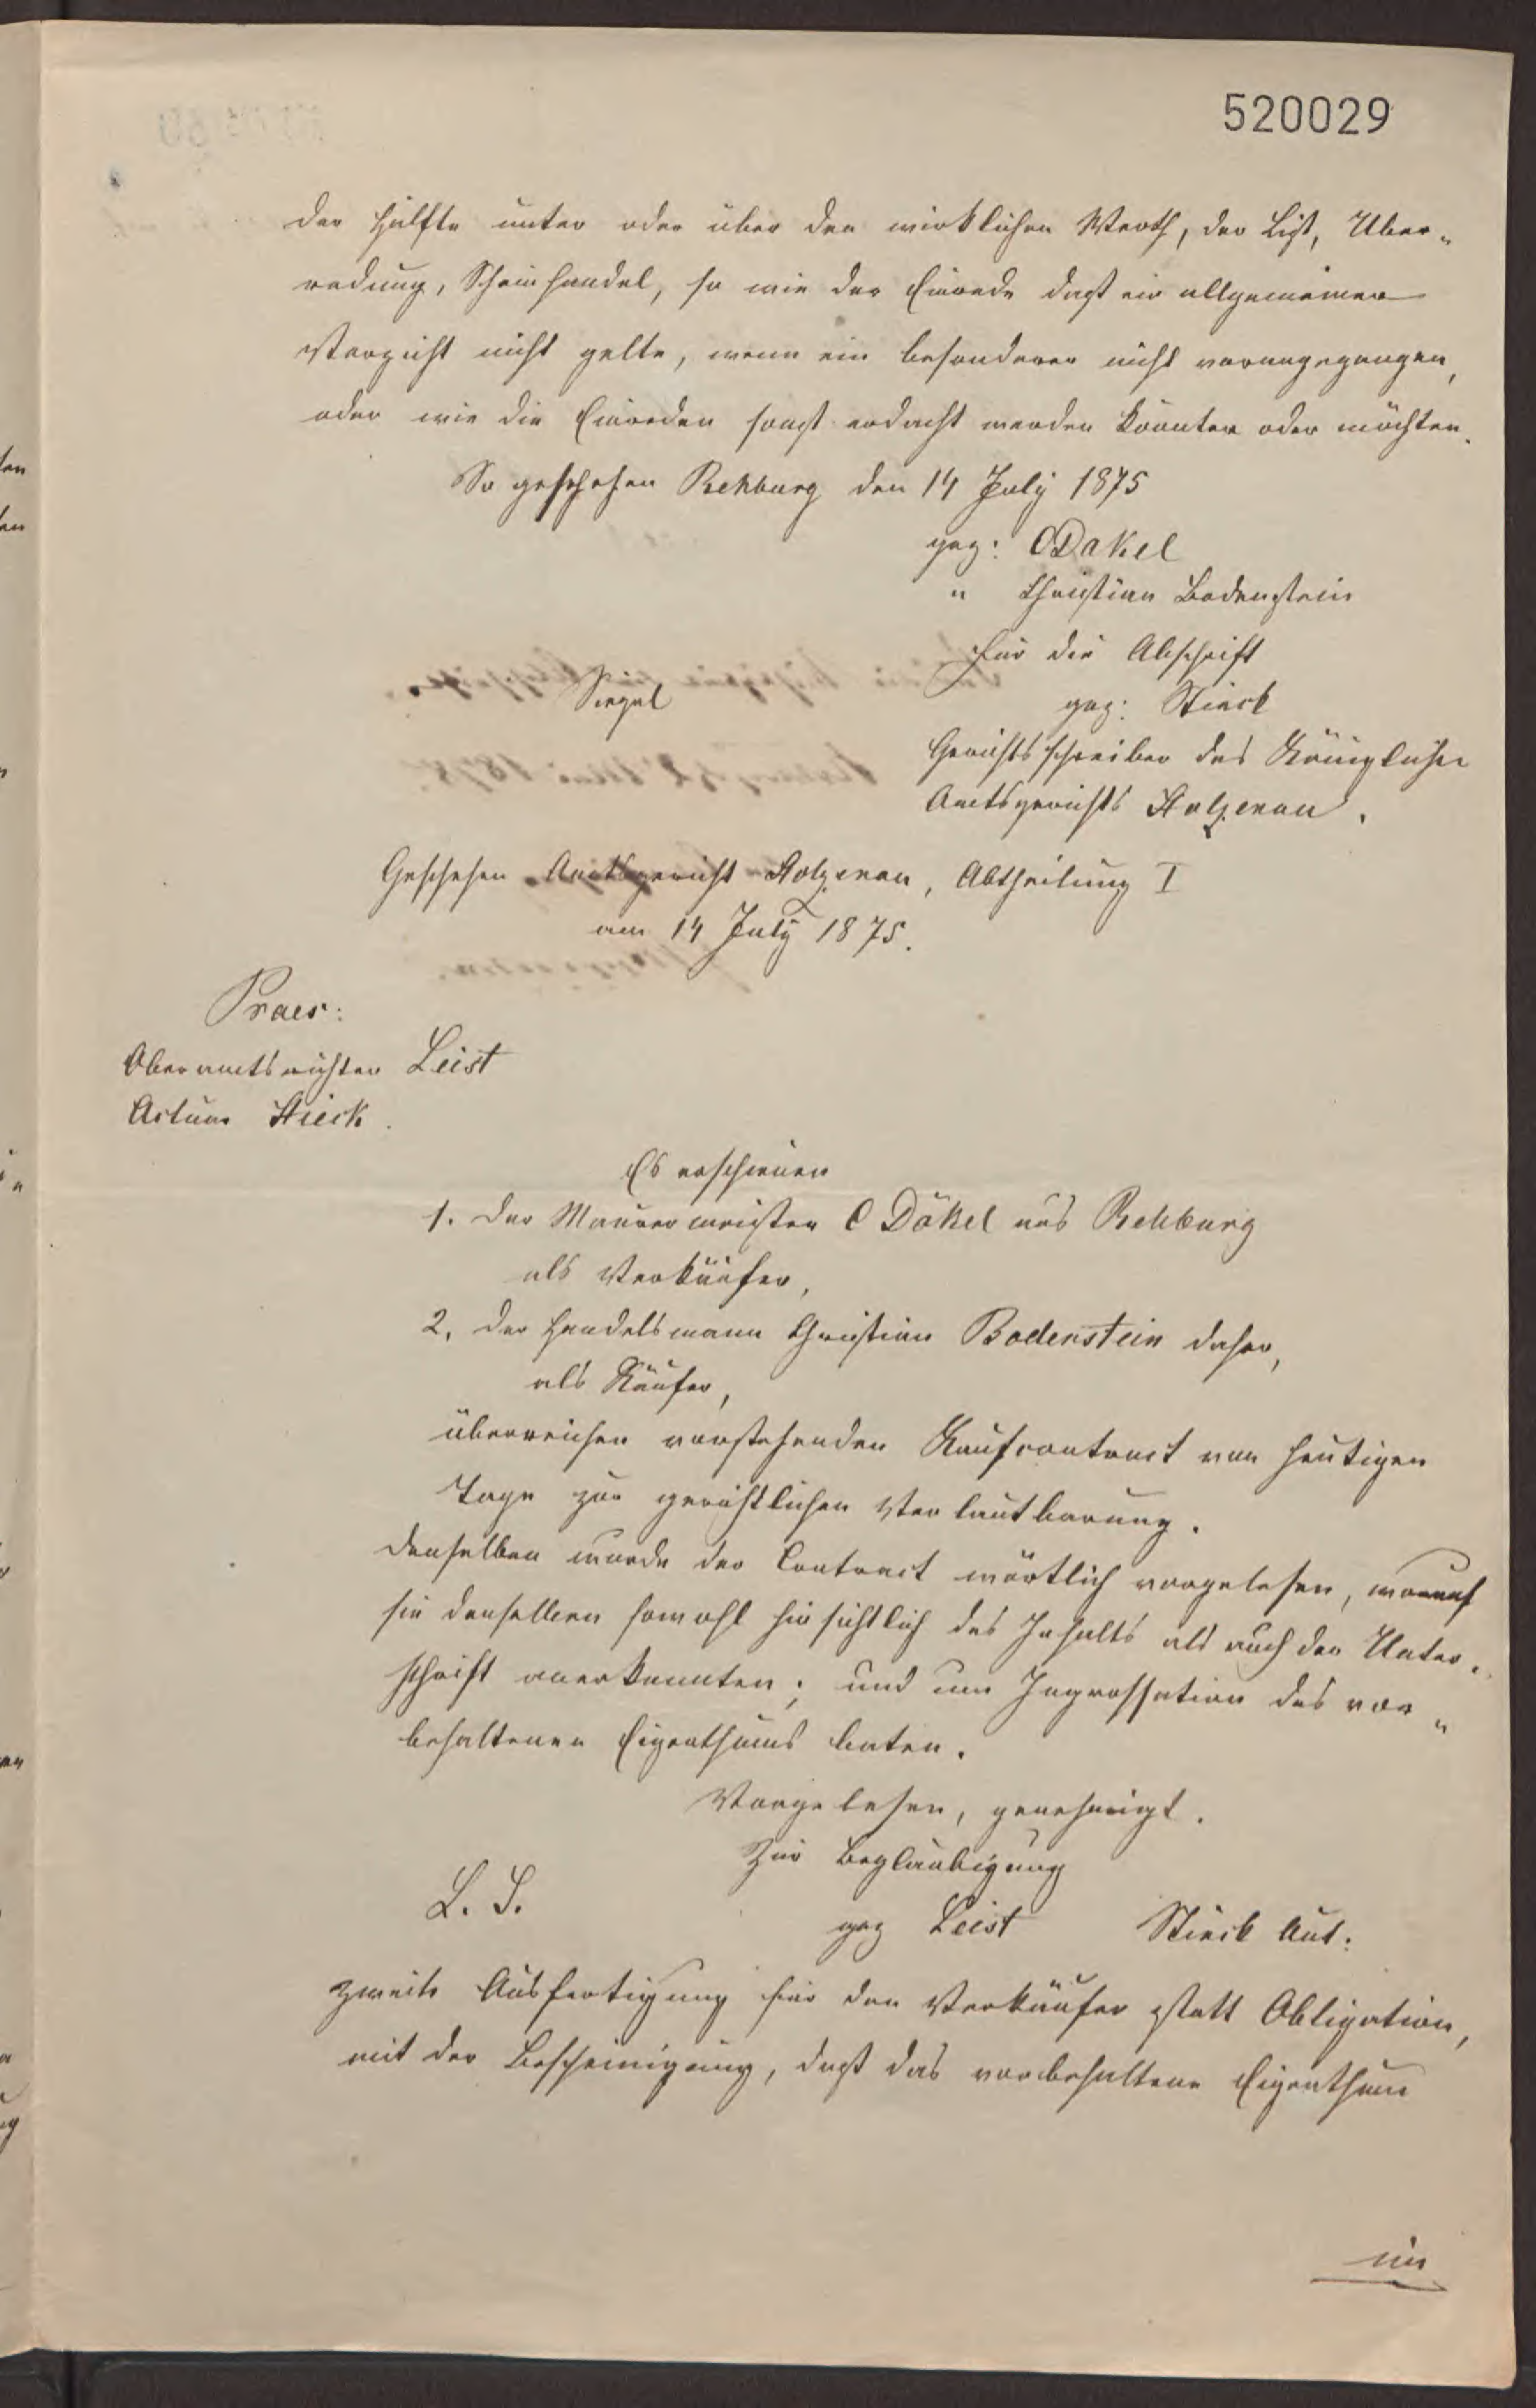 520029
der Hälfte unter oder über den wirklichen Werth, der List, Über„
redung, Scheinhandel, so wie der Einrede daß ein allgemeiner
Verzicht nicht gelte, wenn ein besonderer nicht vorangegangen,
oder wie die Einreden sonst erdacht werden könnten oder möchten.
So geschehen Rehburg den 14 July 1875
gez: C Däkel
" Christian Bodenstein
für die Abschrift
Siegel
gez: Stieck
Gerichtsschreiber des Königlichen
Amtsgerichts Stolzenau.
Geschehen Amtsgericht Stolzenau, Abtheilung I
am 14 July 1875.
Praes:
Oberamtsrichter Leist
Actuar Stieck.
Es erschienen
1. der Maurermeister C Däkel aus Rehburg
als Verkäufer,
2. der Handelsmann Christian Bodenstein daher,
als Käufer,
überreichen vorstehenden Kaufcontract von heutigen
Tage zur gerichtlichen Verlautbarung.
Denselben wurde der Contract wörtlich vorgelesen, worauf
sie denselben sowohl hinsichtlich des Inhalts als auch der Unter„
schrift anerkannten; und um Ingrossation des vor„
behaltenen Eigenthums baten.
Vorgelesen, genehmigt.
Zur Beglaubigung
L. S.
gez Leist Stieck Act:
zweite Ausfertigung für den Verkäufer statt Obligation,
mit der Bescheinigung, daß das vorbehaltene Eigenthum
im